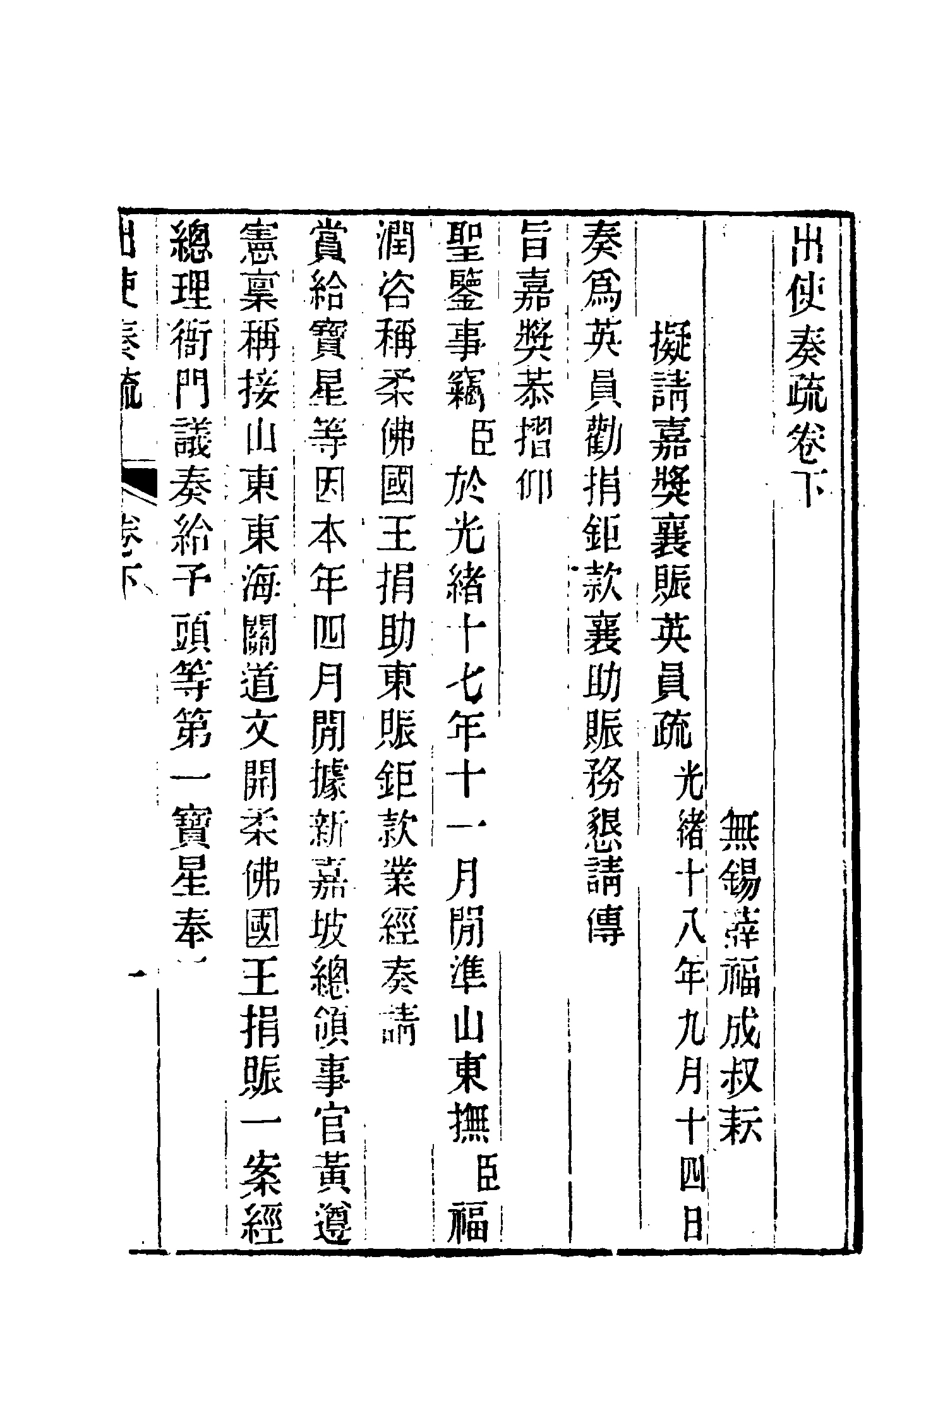 出使奏疏卷下
無錫薛福成叔耘
擬請嘉獎襄賑英員疏 光緒十八年九月十四日
奏爲英員勸捐鉅款襄助賑務懇請傳
旨嘉獎恭摺仰
聖鑒事竊臣於光緒十七年十一月閒準山東撫臣福
潤咨稱柔佛國王捐助東賑鉅款業經奏請
賞給寶星等因本年四月閒據新嘉坡總領事官黃遵
憲稟稱接山東東海關道文開柔佛國王捐賑一案經
總理衙門議奏給予頭等第一寶星奉
出使奏疏 卷下 一